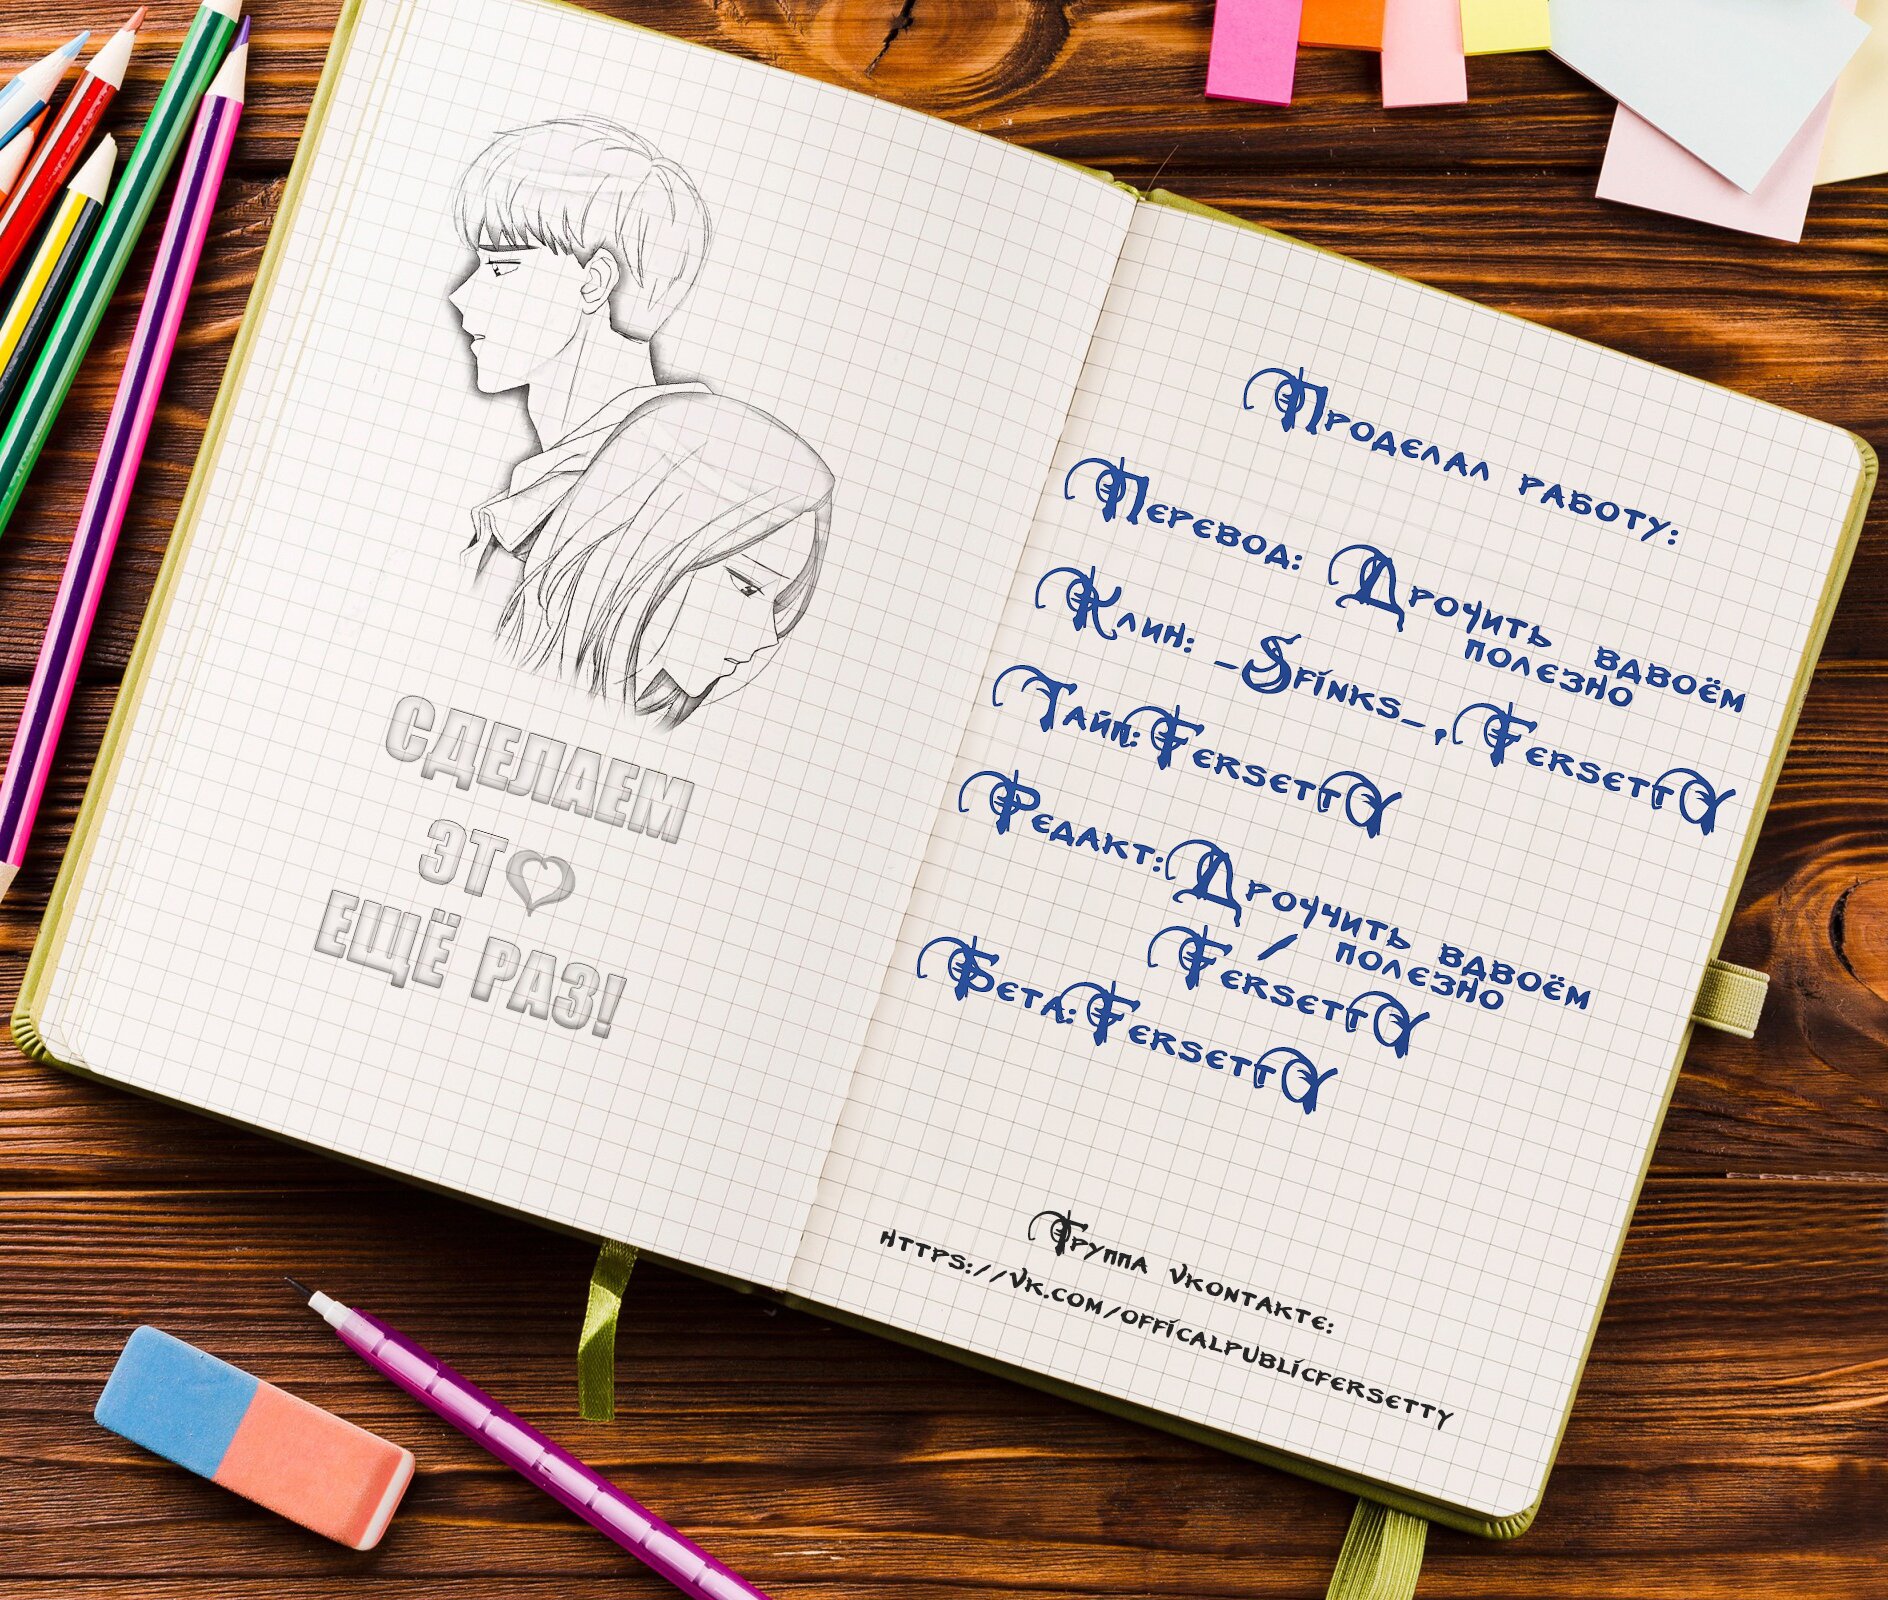 СДЕЛАЕМ
ЭТ♡
ЕЩЁ РАЗ!
Проделал работу:
Перевод: Дрочить вдвоём
полезно
Клин: _Sfinks_, Fersetty
Тайп: Fersetty
Редакт: Дроччить вдвоём
/ полезно
Fersetty
Бета: Fersetty
Группа vkontakte:
https://vk.com/officalpublicfersetty